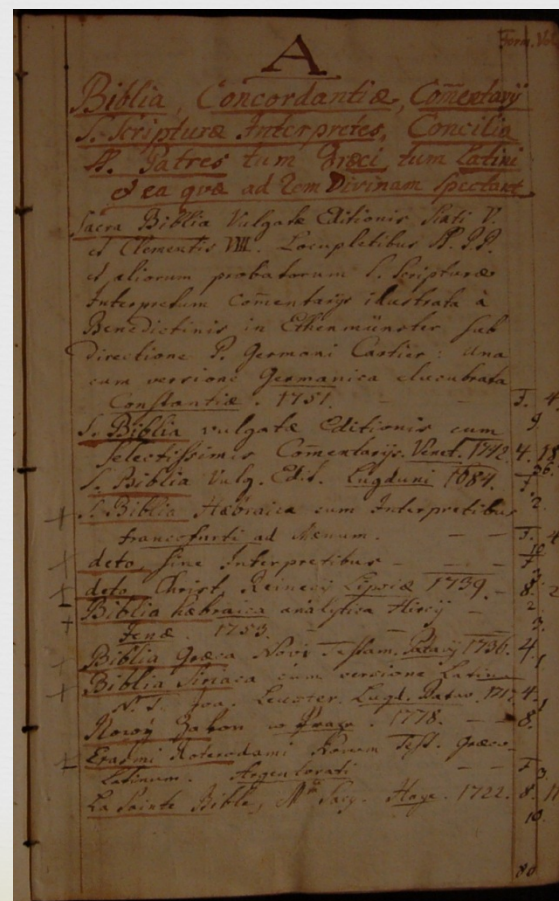 Form. Vol.
A
Biblia, Concordantiæ, Com̄entarij
S. Scripturæ Interpretes, Concilia
SS. Patres tum Græci, tum Latini
& ea quæ ad rem Divinam spectant
Sacra Biblia Vulgatæ Editionis Sixti V.
et Clementis VIII. Locupletibus SS. P.P.
et aliorum probatorum S. Scripturæ
Interpretum Com̄entarijs illustrata à
Benedictinis in Ethenmünster sub
directione P. Germani Cartier: una
cum versione Germanica elucubrata
Constantiæ. 1751. — — F. 4
S. Biblia vulgatæ Editionis cum 9.
selectissimis Com̄entarijs. Venet. 1742. 4. 28
S. Biblia Vulg. Edit. Lugduni 1684. F.
+ S. Biblia Hebraica cum Interpretibus 2.
francofurti ad Mænum. — — F. 4
+ deto, sine Interpretibus — — — F.
+ deto Christ. Reinecij Lipsiæ 1739. — 8. 2
+ Biblia hæbraica analytica Hircij — 2.
Jenæ. 1753. — — 3.
+ Biblia Græca Novi Testam. Patavij 1736. 4.
+ Biblia Siriaca cum versione Latina
N. T. Joa. Leuster. Lugd. Batav. 1717. 4.
Nowý Zakon w Praze. 1778. — — 8.
+ Erasmi Roterodami Novum Test. Græco-
Latinum. Argentorati — — F.
La Sainte Bible, Mr. Sacy. Haye. 1722. 8. 11
10.
80